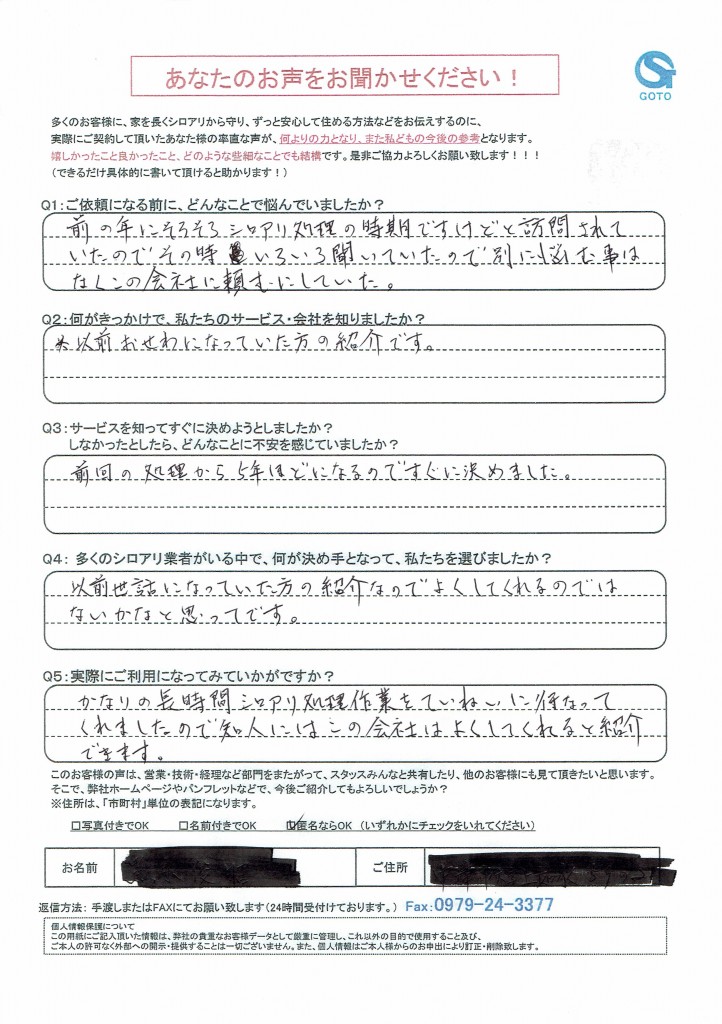 あなたのお声をお聞かせください！
GOTO
多くのお客様に、家を長くシロアリから守り、ずっと安心して住める方法などをお伝えするのに、
実際にご契約して頂いたあなた様の率直な声が、何よりの力となり、また私どもの今後の参考となります。
嬉しかったこと良かったこと、どのような些細なことでも結構です。是非ご協力よろしくお願い致します！！！
（できるだけ具体的に書いて頂けると助かります！）
Q1：ご依頼になる前に、どんなことで悩んでいましたか？
前の年にそろそろシロアリ処理の時期ですけどと訪問されて
いたのでその時いろいろ聞いていたので別に悩む事は
なくこの会社に頼むにしていた。
Q2：何がきっかけで、私たちのサービス・会社を知りましたか？
以前おせわになっていた方の紹介です。
Q3：サービスを知ってすぐに決めようとしましたか？
しなかったとしたら、どんなことに不安を感じていましたか？
前回の処理から5年ほどになるのですぐに決めました。
Q4： 多くのシロアリ業者がいる中で、何が決め手となって、私たちを選びましたか？
以前世話になっていた方の紹介なのでよくしてくれるのでは
ないかなと思ってです。
Q5：実際にご利用になってみていかがですか？
かなりの長時間シロアリ処理作業をていねいに行なって
くれましたので知人にはこの会社はよくしてくれると紹介
できます。
このお客様の声は、営業・技術・経理など部門をまたがって、スタッスみんなと共有したり、他のお客様にも見て頂きたいと思います。
そこで、弊社ホームページやパンフレットなどで、今後ご紹介してもよろしいでしょうか？
※住所は、「市町村」単位の表記になります。
□写真付きでOK □名前付きでOK ☑匿名ならOK （いずれかにチェックをいれてください）
お名前 ご住所
返信方法： 手渡しまたはFAXにてお願い致します（24時間受付けております。） Fax：0979-24-3377
個人情報保護について
この用紙にご記入頂いた情報は、弊社の貴重なお客様データとして厳重に管理し、これ以外の目的で使用すること及び、
ご本人の許可なく外部への開示・提供することは一切ございません。また、個人情報はご本人様からのお申出により訂正・削除致します。